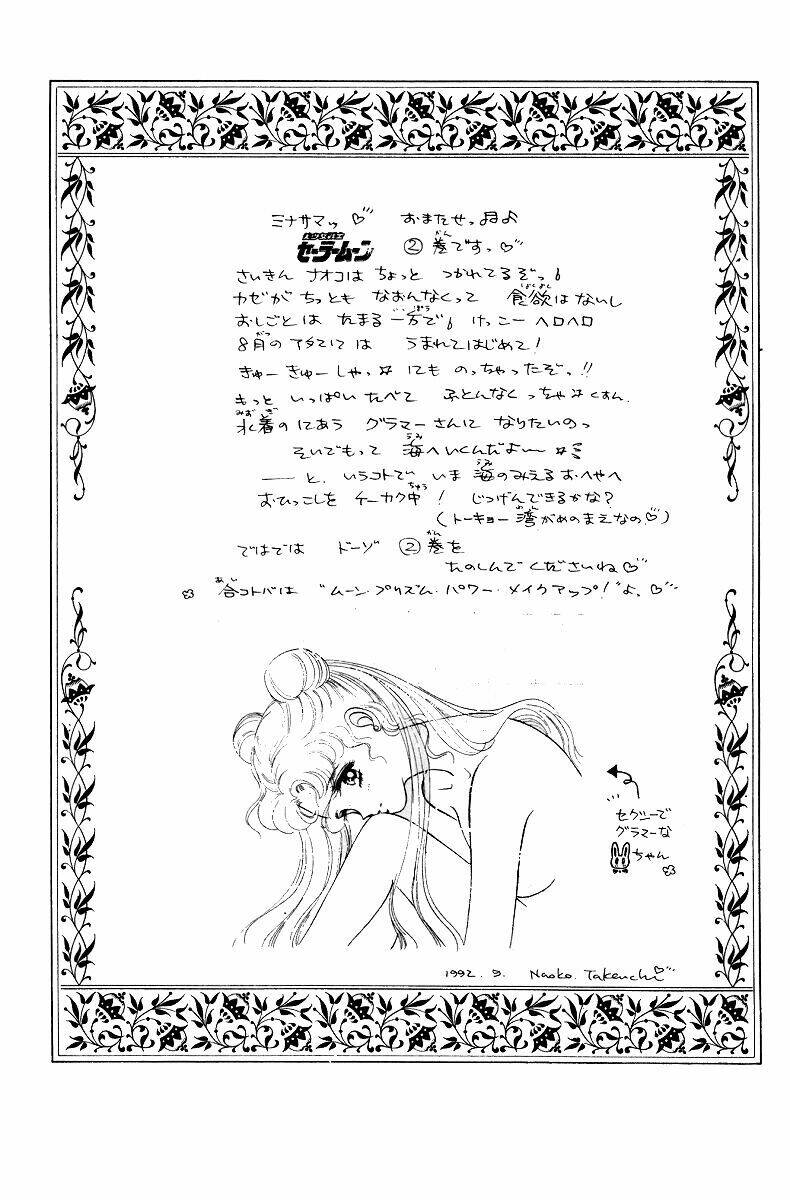 ミナサマッ♡ おまたせっ♬♪
美少女戦士
セーラームーン ②巻ですっ♡
さいきん ナオコは ちょっと つかれてるぞっ!
カゼが ちっとも なおんなくって 食欲はないし
おしごとは たまる 一方で! けっこー ヘロヘロ
8月の アタマには うまれてはじめて!
きゅーきゅーしゃっ☆ にも のっちゃったぞっ!!
もっと いっぱい たべて ふとんなくっちゃ☆くすん
水着のにあう グラマーさんに なりたいのっ
そいでもって 海へいくんだよ〜☆ミ
――と、いうコトで いま 海のみえるおへやへ
おひっこしを チーカク中! じつげんできるかな?
(トーキョー湾がめのまえなの♡)
ではでは ドーゾ ②巻を
たのしんでくださいね♡
合コトバは "ムーン・プリズム・パワー・メイクアップ!"よ、♡
セクシーで
グラマーな
ちゃん
1992. 9. Naoko. Takeuchi♡